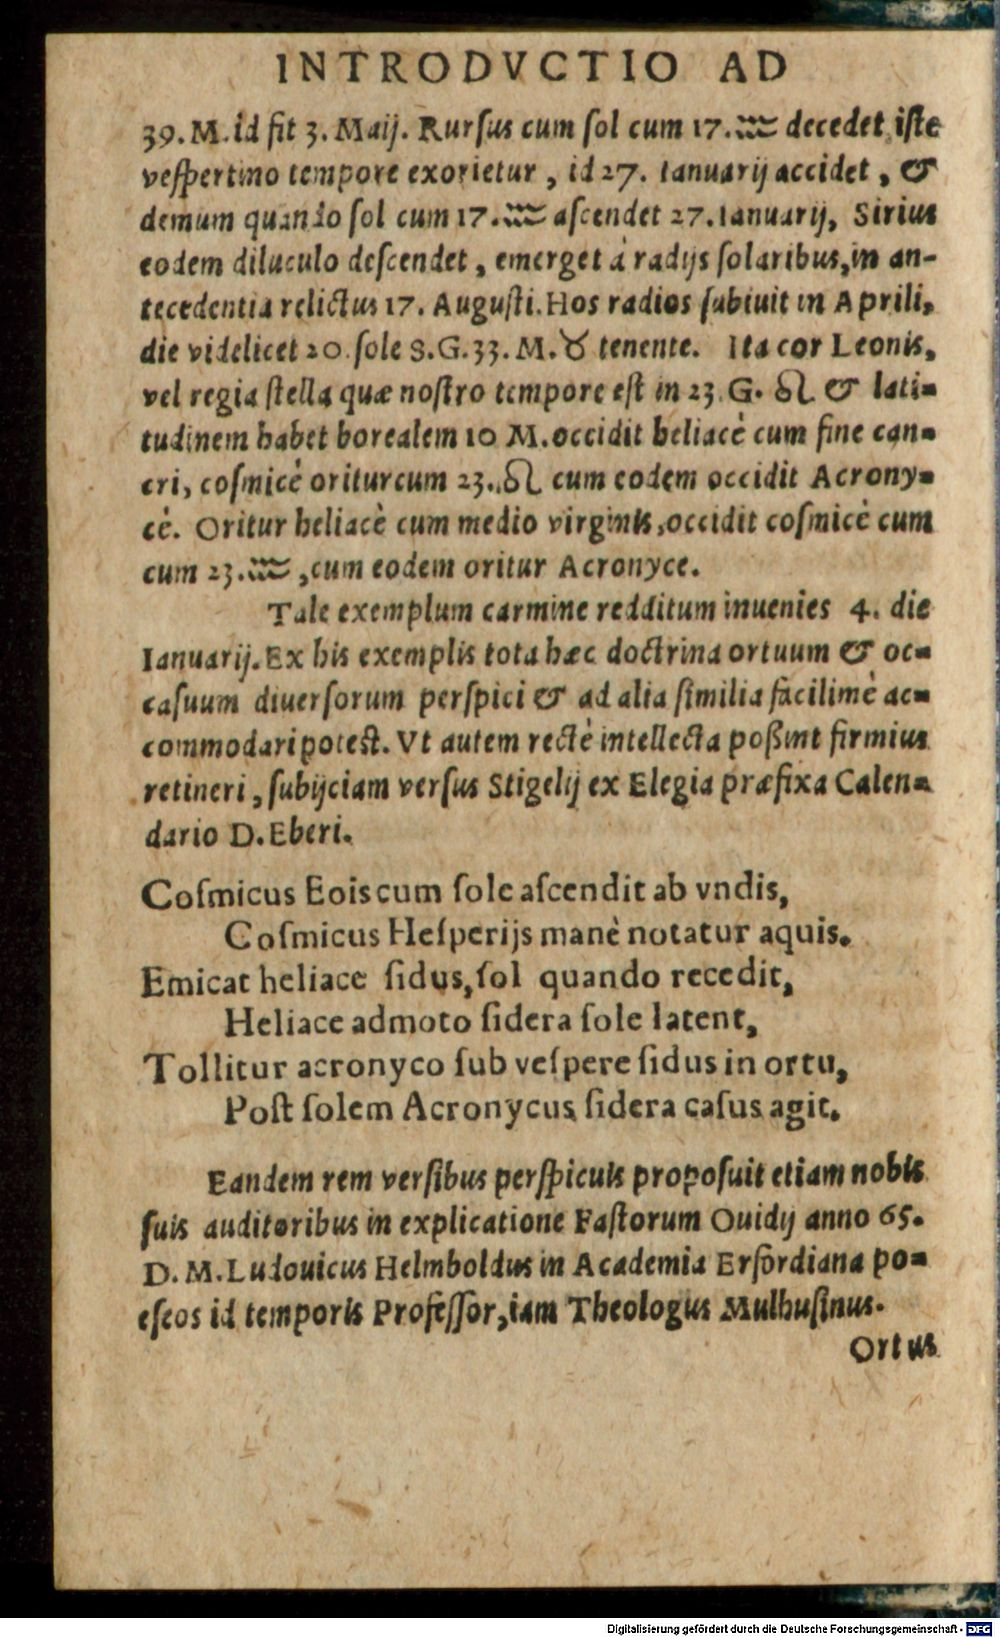 INTRODVCTIO AD
39. M. id fit 3. Maij. Rursus cum sol cum 17. ♒ decedet iste
vespertino tempore exorietur, id 27. Ianuarij accidet, &
demum quando sol cum 17. ♒ ascendet 27. Ianuarij, Sirius
eodem diluculo descendet, emerget à radijs solaribus, in an-
tecedentia relictus 17. Augusti. Hos radios subiuit in Aprili,
die videlicet 20. sole 8. G. 33. M. ♉ tenente. Ita cor Leonis,
vel regia stella quæ nostro tempore est in 23. G. ♌ & lati-
tudinem habet borealem 10 M. occidit heliacè cum fine can-
cri, cosmicè oritur cum 23. ♌ cum eodem occidit Acrony-
cè. Oritur heliacè cum medio virginis, occidit cosmicè cum
cum 23. ♒, cum eodem oritur Acronyce.
Tale exemplum carmine redditum inuenies 4. die
Ianuarij. Ex his exemplis tota hæc doctrina ortuum & oc-
casuum diuersorum perspici & ad alia similia facilimè ac-
commodari potest. Vt autem rectè intellecta possint firmius
retineri, subijciam versus Stigelij ex Elegia præfixa Calen-
dario D. Eberi.
Cosmicus Eois cum sole ascendit ab vndis,
Cosmicus Hesperijs manè notatur aquis.
Emicat heliace sidus, sol quando recedit,
Heliace admoto sidera sole latent,
Tollitur acronyco sub vespere sidus in ortu,
Post solem Acronycus sidera casus agit.
Eandem rem versibus perspicuis proposuit etiam nobis
suis auditoribus in explicatione Fastorum Ouidij anno 65.
D. M. Ludouicus Helmboldus in Academia Erfordiana po-
eseos id temporis Professor, iam Theologus Mulhusinus.
Ortus
Digitalisierung gefördert durch die Deutsche Forschungsgemeinschaft - DFG